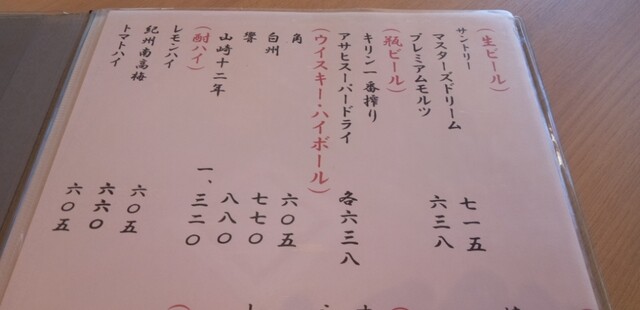 (生ビール)
サントリー
マスターズドリーム 七一五
プレミアムモルツ 六三八
(瓶ビール)
キリン一番搾り
アサヒスーパードライ 各六三八
(ウイスキー・ハイボール)
角 六〇五
白州 七七〇
響 八八〇
山崎十二年 一、三二〇
(酎ハイ)
レモンハイ 六〇五
紀州南高梅 六六〇
トマトハイ 六〇五